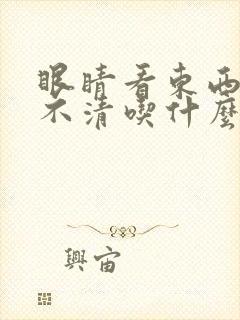 眼睛看東西
不清喫什麽
興宙